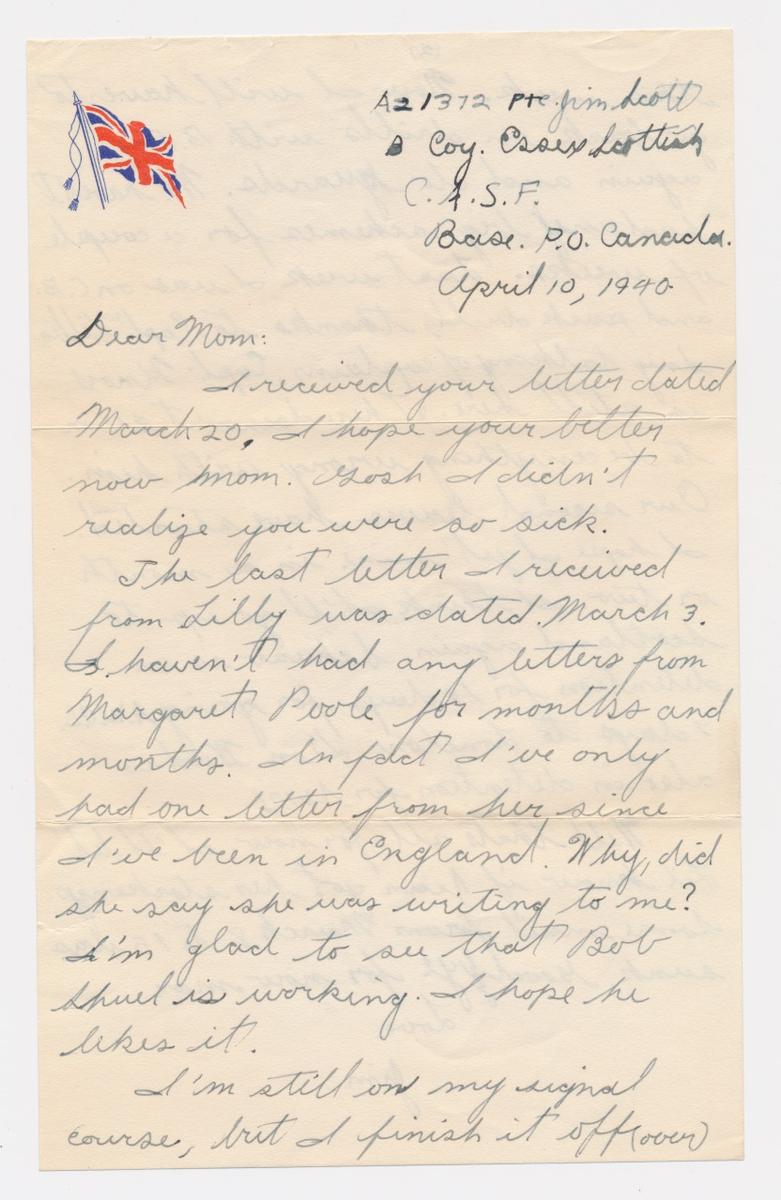 A21372 Pte. Jim Scott
B Coy. Essex Scottish
C.A.S.F.
Base. P.O. Canada.
April 10, 1940
Dear Mom:
I received your letter dated
March 20, I hope your better
now Mom. Gosh I didn't
realize you were so sick.
The last letter I received
from Lilly was dated March 3.
I haven't had any letters from
Margaret Poole for months and
months. In fact I've only
had one letter from her since
I've been in England. Why, did
she say she was writing to me?
I'm glad to see that Bob
Shuel is working. I hope he
likes it.
I'm still on my signal
course, but I finish it off (over)